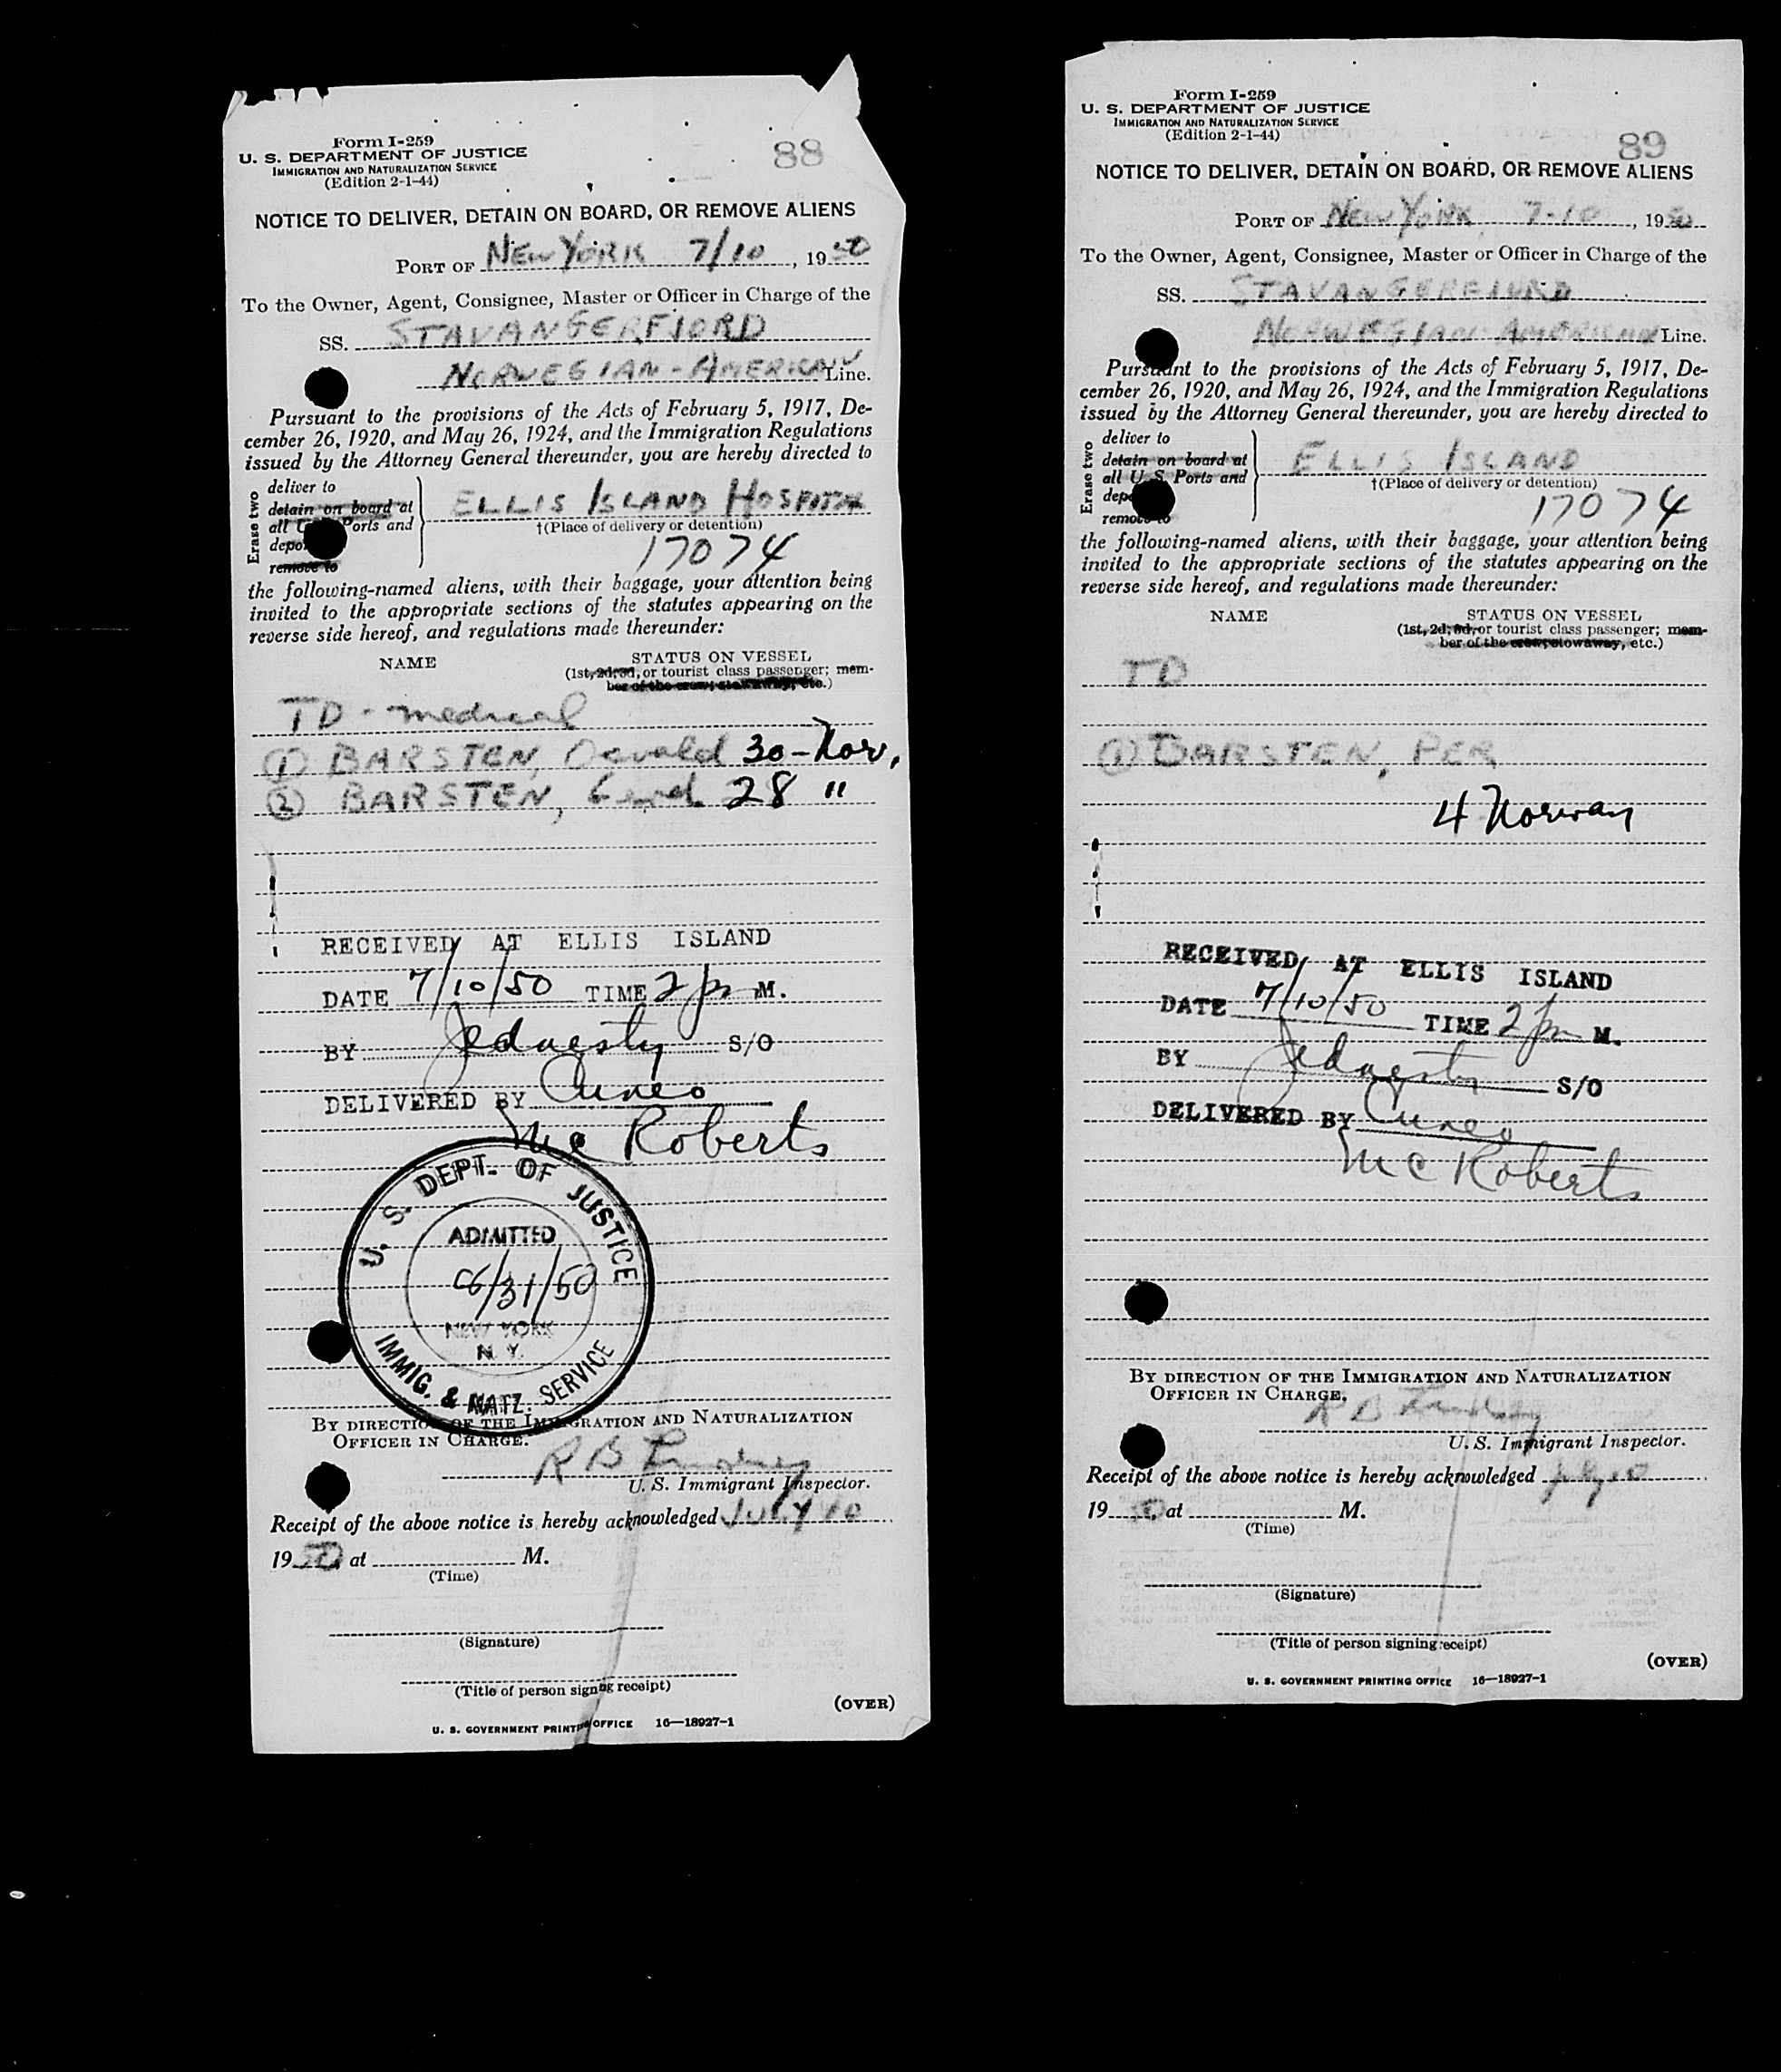 Form I-259
U. S. DEPARTMENT OF JUSTICE
IMMIGRATION AND NATURALIZATION SERVICE
(Edition 2-1-44)
88
NOTICE TO DELIVER, DETAIN ON BOARD, OR REMOVE ALIENS
PORT OF NEW YORK 7/10, 1950
To the Owner, Agent, Consignee, Master or Officer in Charge of the
SS. STAVANGERFJORD
NORWEGIAN-AMERICAN Line.
Pursuant to the provisions of the Acts of February 5, 1917, De-
cember 26, 1920, and May 26, 1924, and the Immigration Regulations
issued by the Attorney General thereunder, you are hereby directed to
Erase two
deliver to
detain on board at
all Ports and
remove to
ELLIS ISLAND HOSPITAL
†(Place of delivery or detention)
17074
the following-named aliens, with their baggage, your attention being
invited to the appropriate sections of the statutes appearing on the
reverse side hereof, and regulations made thereunder:
NAME
STATUS ON VESSEL
(1st, 2d, 3d, or tourist class passenger; mem-
ber of the crew; stowaway, etc.)
TD - medical
(1) BARSTEN, 30 - Nor,
(2) BARSTEN, 28 "
RECEIVED AT ELLIS ISLAND
DATE 7/10/50 TIME 2 pm M.
BY S/O
DELIVERED BY Cuneo
Mc Roberts
U. S. DEPT. OF JUSTICE
ADMITTED
/31/50
NEW YORK
N. Y.
IMMIG. & NATZ. SERVICE
BY DIRECTION OF THE IMMIGRATION AND NATURALIZATION
OFFICER IN CHARGE.
R B
U. S. Immigrant Inspector.
Receipt of the above notice is hereby acknowledged JULY 10
1950 at M.
(Time)
(Signature)
(Title of person signing receipt)
(OVER)
U. S. GOVERNMENT PRINTING OFFICE 16—18927-1
Form I-259
U. S. DEPARTMENT OF JUSTICE
IMMIGRATION AND NATURALIZATION SERVICE
(Edition 2-1-44)
89
NOTICE TO DELIVER, DETAIN ON BOARD, OR REMOVE ALIENS
PORT OF NEW YORK 7-10, 1950
To the Owner, Agent, Consignee, Master or Officer in Charge of the
SS. STAVANGERFJORD
NORWEGIAN AMERICAN Line.
Pursuant to the provisions of the Acts of February 5, 1917, De-
cember 26, 1920, and May 26, 1924, and the Immigration Regulations
issued by the Attorney General thereunder, you are hereby directed to
Erase two
deliver to
detain on board at
all U. S. Ports and
remove to
ELLIS ISLAND
†(Place of delivery or detention)
17074
the following-named aliens, with their baggage, your attention being
invited to the appropriate sections of the statutes appearing on the
reverse side hereof, and regulations made thereunder:
NAME
STATUS ON VESSEL
(1st, 2d, 3d, or tourist class passenger; mem-
ber of the crew; stowaway, etc.)
TD
(1) BARSTEN, PER
4 Norway
RECEIVED AT ELLIS ISLAND
DATE 7/10/50 TIME 2 pm M.
BY S/O
DELIVERED BY Cuneo
Mc Roberts
BY DIRECTION OF THE IMMIGRATION AND NATURALIZATION
OFFICER IN CHARGE.
R B
U. S. Immigrant Inspector.
Receipt of the above notice is hereby acknowledged July 10
1950 at M.
(Time)
(Signature)
(Title of person signing receipt)
(OVER)
U. S. GOVERNMENT PRINTING OFFICE 16—18927-1